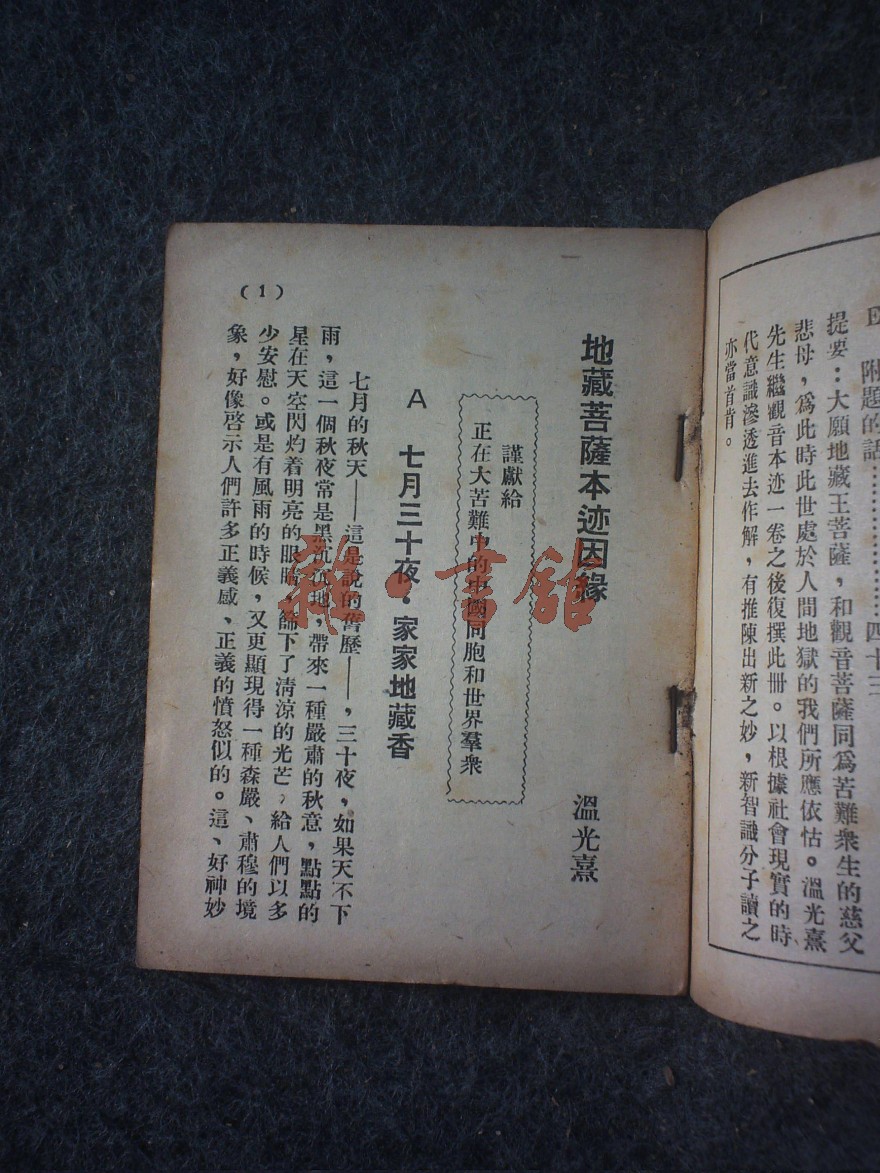 附題的話……………………四十三
提要：大願地藏王菩薩，和觀音菩薩同爲苦難衆生的慈父
悲母，爲此時此世處於人間地獄的我們所應依怙。溫光熹
先生繼觀音本迹一卷之後復撰此冊。以根據社會現實的時
代意識滲透進去作解，有推陳出新之妙，新智識分子讀之
亦當首肯。
地藏菩薩本迹因緣
溫光熹
謹獻給
正在大苦難中的中國同胞和世界羣衆
A 七月三十夜・家家地藏香
七月的秋天——這是說的舊歷——，三十夜，如果天不下
雨，這一個秋夜常是黑沉沉地，帶來一種嚴肅的秋意，點點的
星在天空閃灼着明亮的眼睛，篩下了清涼的光芒，給人們以多
少安慰。或是有風雨的時候，又更顯現得一種森嚴、肅穆的境
象，好像啓示人們許多正義感、正義的憤怒似的。這、好神妙
(1)
雜·書館